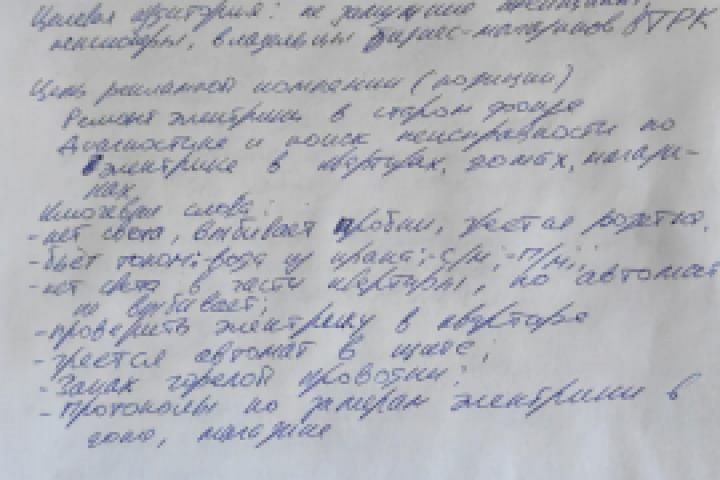 Целевая аудитория: не замужние женщины,
пенсионеры, владельцы бизнес-магазинов в ТРК
Цель рекламной компании (позиции)
Ремонт электрики в старом фонде
Диагностика и поиск неисправности по
электрике в квартирах, домах, магази-
нах.
Ключевые слова:
-нет света, выбивает пробки, греется розетка,
-бьёт током: вода из крана; -с/м; -п/м;
-нет света в части квартиры, но автомат
не выбивает;
-проверить электрику в квартире
-греется автомат в щите;
-Запах горелой проводки;
-Протоколы по замерам электрики в
доме, магазине